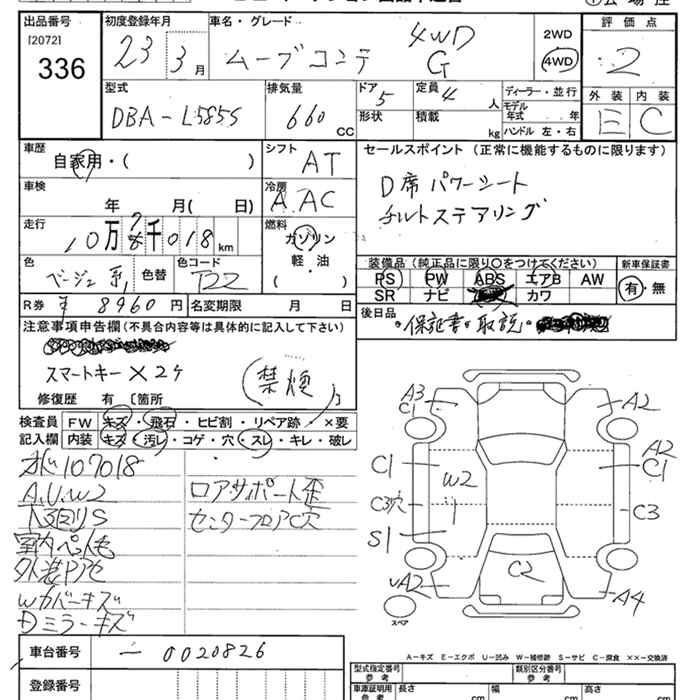 出品番号
[2072]
336
初度登録年月
23 3月
車名・グレード
ムーブコンテ 4WD G
2WD
4WD
評価点
2
外装 内装
E C
型式
DBA-L585S
排気量
660 CC
ドア
5
形状
定員
4 人
積載 kg
ディーラー・並行
モデル年式 年
ハンドル 左・右
車歴
自家用・( )
シフト
AT
車検
年 月( 日)
冷房
AAC
走行
10万7千018km
燃料
ガソリン
軽・油
( )
色
ベージュ系
色替
色コード
T22
R券 ¥8960円
名変期限 月 日
セールスポイント (正常に機能するものに限ります)
D席パワーシート
チルトステアリング
装備品 (純正品に限り〇をつけてください)
PS PW ABS エアB AW
SR ナビ カワ
新車保証書
有・無
後日品
・保証書・取説・
注意事項申告欄(不具合内容等は具体的に記入して下さい)
スマートキー×2ケ
(禁煙)
修復歴 有 〔箇所 〕
検査員記入欄
FW キズ・飛石・ヒビ割・リペア跡・×要
内装 キズ・汚レ・コゲ・穴・スレ・キレ・破レ
メーター107018
A.U.W2
下回りS
室内ペット毛
外装
Wカバーキズ
Dミラーキズ
ロアサポート歪
センターフロアC穴
A3
C1
A2
C1
W2
A2
C1
C3穴
C3
S1
A2
C2
A4
スペア
車台番号
-0020826
登録番号
A-キズ E-エクボ U-凹み W-補修跡 S-サビ C-腐食 ××-交換済
型式指定番号
参考
類別区分番号
参考
車庫証明用
参考
長さ cm
幅 cm
高さ cm